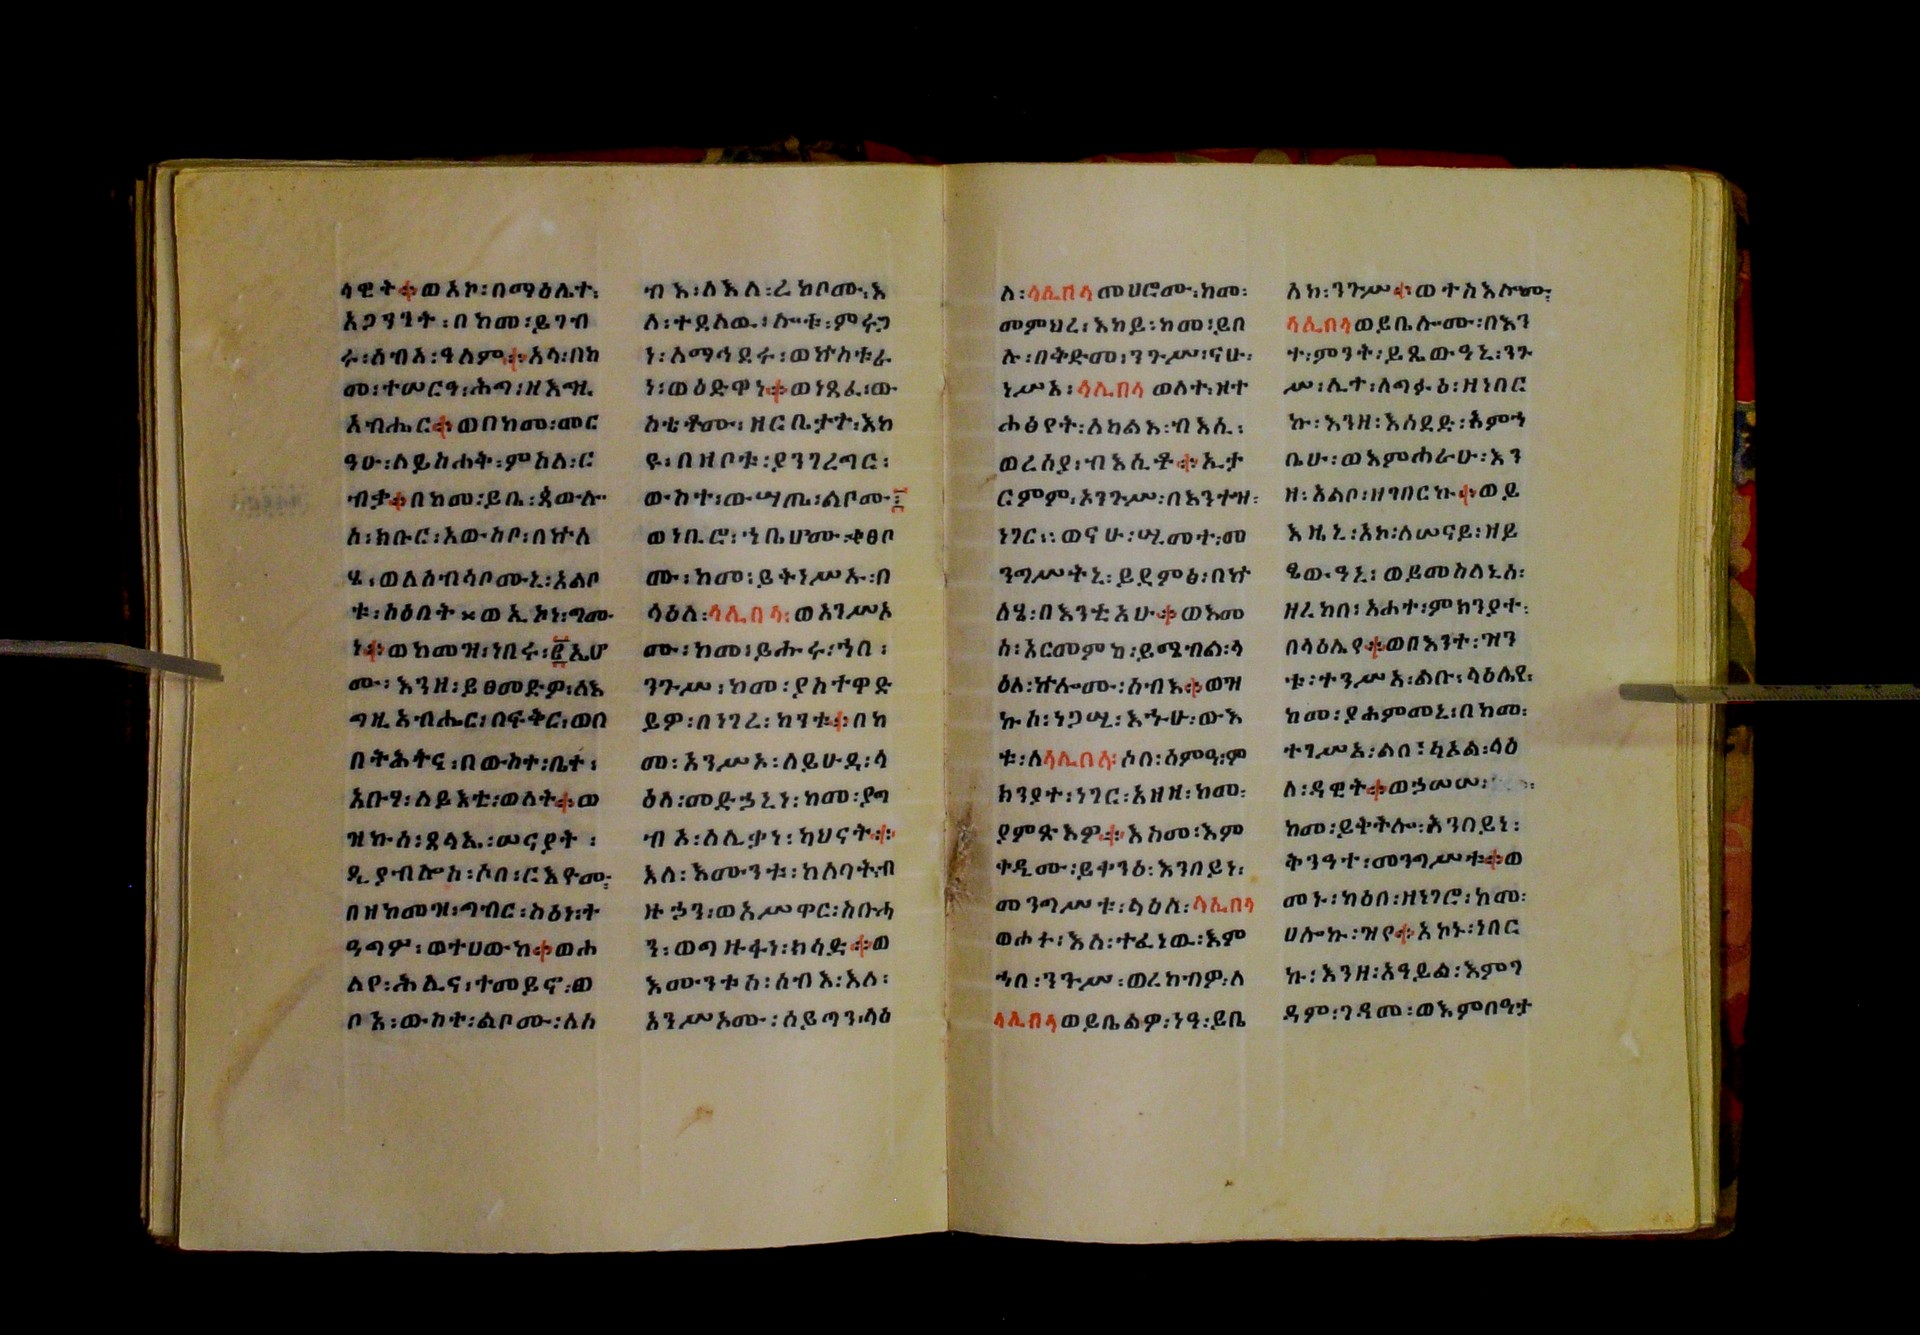 ላዊት፨ወአኮ፡በማዕሌተ፡
አጋንንት፡በከመ፡ይገብ
ሩ፡ሰብአ፡ዓለም፨አላ፡በከ
መ፡ተሠርዓ፡ሕግ፡ዘእግዚ
አብሔር፨ወበከመ፡መር
ዓሁ፡ለይስሐቅ፡ምስለ፡ር
ብቃ፨በከመ፡ይቤ፡ጳውሎ
ስ፡ክቡር፡አውስቦ፡በኵለ
ሄ፡ወለአብሳቦሙኒ፡አልቦ
ቱ፡ስዕበት፨ወኢኮነ፡ግሙ
ነ፨ወከመዝ፡ነበሩ፡፪ኢሆ
ሙ፡እንዘ፡ይፀመድዎ፡ለእ
ግዚአብሔር፡በፍቅር፡ወበ
በትሕትና፡በውስተ፡ቤተ፡
አቡሃ፡ለይእቲ፡ወለት፨ወ
ዝኩሰ፡ጸላኢ፡ሠናያት፡
ዲያብሎስ፡ሶበ፡ርእዮሙ፡
በዘከመዝ፡ግብር፡ስዕነ፡ት
ዓግሦ፡ወተሀውከ፨ወሐ
ለየ፡ሕሊና፡ተመይኖ፡ወ
ቦአ፡ውስተ፡ልቦሙ፡ለስ
ብእ፡ለእለ፡ረከቦሙ፡እ
ለ፡ተደለዉ፡ሎቱ፡ምሩጋ
ነ፡ለማኅደሩ፡ወኵስቱራ
ነ፡ወዕድዋነ፨ወነጸፈ፡ው
ስቲቶሙ፡ዘርቤታተ፡እከ
ዩ፡በዘቦቱ፡ያንገረግር፡
ውስተ፡ውሣጤ፡ልቦሙ፡
ወነቢሮ፡ኀቤሆሙ፡ቀፀቦ
ሙ፡ከመ፡ይትነሥኡ፡በ
ላዕለ፡ላሊበላ፡ወአንሥኦ
ሙ፡ከመ፡ይሑሩ፡ኀበ፡
ንጉሥ፡ከመ፡ያስተዋድ
ይዎ፡በነገረ፡ከንቱ፨በከ
መ፡አንሥኦ፡ለይሁዳ፡ላ
ዕለ፡መድኃኒነ፡ከመ፡ያግ
ብኦ፡ለሊቃነ፡ካህናት፨
እለ፡እሙንቱ፡ከለባት፡ብ
ዙኃን፡ወአሥዋር፡ስቡሓ
ን፡ወግዙፋነ፡ክሳድ፨ወ
እሙንቱሰ፡ሰብእ፡እለ፡
አንሥኦሙ፡ሰይጣን፡ላዕ
ለ፡ላሊበላመሀሮሙ፡ከመ፡
መምህረ፡እከይ፡ከመ፡ይበ
ሉ፡በቅድመ፡ንጉሥ፡ናሁ፡
ነሥአ፡ላሊበላ ወለተ፡ዘተ
ሐፅየት፡ለካልእ፡ብእሲ፡
ወረሰያ፡ብእሲቶ፨ኢታ
ርምም፡ኦንጉሥ፡በእንተዝ፡
ነገር፡፡ወናሁ፡ሢመተ፡መ
ንግሥትኒ፡ይደምፅ፡በኵ
ለሄ፡በእንቲአሁ፨ወእመ
ሰ፡አርመምከ፡ይሜብል፡ላ
ዕለ፡ኵሎሙ፡ሰብእ፨ወዝ
ኩሰ፡ነጋሢ፡እኁሁ፡ውእ
ቱ፡ለላሊበላ፡ሶበ፡ሰምዓ፡ም
ክንያተ፡ነገር፡አዘዘ፡ከመ፡
ያምጽእዎ፨እስመ፡እም
ቀዲሙ፡ይቀንዕ፡እንበይነ፡
መንግሥቱ፡ላዕለ፡ላሊበላ
ወሖተ፡እለ፡ተፈነዉ፡እም
ኀበ፡ንጉሥ፡ወረከብዎ፡ለ
ላሊበላወይቤልዎ፡ነዓ፡ይቤ
ለከ፡ንጉሥ፨ወተስእሎሙ፡
ላሊበላወይቤሎሙ፡በእን
ተ፡ምንት፡ይጼውዓኒ፡ንጉ
ሥ፡ሊተ፡ለግፉዕ፡ዘነበር
ኩ፡እንዘ፡እሰደድ፡እምኀ
ቤሁ፡ወእምሐራሁ፡እን
ዘ፡አልቦ፡ዘገበርኩ፨ወይ
እዜኒ፡አኮ፡ለሠናይ፡ዘይ
ጼውዓኒ፡ወይመስለኒሰ፡
ዘረከበ፡አሐተ፡ምክንያተ፡
በላዕሌየ፨ወበእንተ፡ዝን
ቱ፡ተንሥአ፡ልቡ፡ላዕሌየ፡
ከመ፡ያሕምመኒ፡በከመ፡
ተንሥአ፡ልበ፡ሳኦል፡ላዕ
ለ፡ዳዊት፨ወኃሠሠ፡
ከመ፡ይቅትሎ፡እንበይነ፡
ቅንዓተ፡መንግሥቱ፨ወ
መኑ፡ካዕበ፡ዘነገሮ፡ከመ፡
ሀሎኩ፡ዝየ፨አኮኑ፡ነበር
ኩ፡እንዘ፡አዓይል፡እምገ
ዳም፡ገዳመ፡ወእምበዓታ